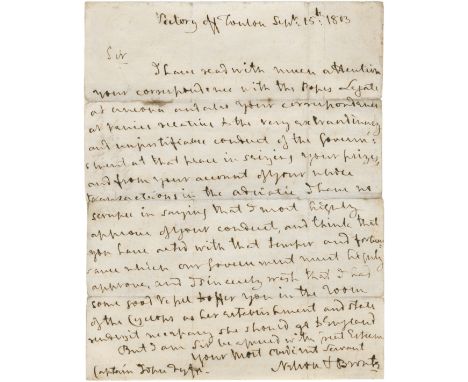 Victory off Toulon Septr. 15th: 1803
Sir
I have read with much attention
your correspondence with the Popes Legate
at ancona and also your correspondence
at Venice relative to the very extraordinary
and unjustifiable conduct of the Govern=
=ment at that place in seizing your prizes,
and from your account of your whole
transactions in the adriatic I have no
scruple in saying that I most highly
approve of your conduct, and think that
you have acted with that temper and forbear=
ance which our Government must highly
approve, and I sincerely wish that I had
some good Vessel to offer you in the room
of the Cyclops as her establishment and state
renders it necessary she should go to England
But I am Sir be assured with real Esteem
your most obedient Servant
Nelson & Bronte
Captain John